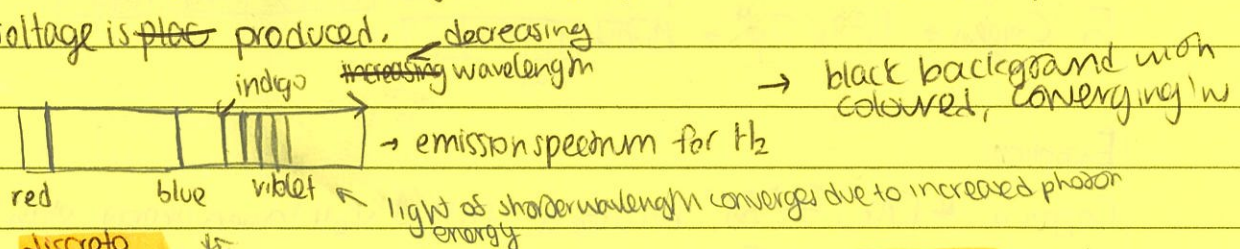 oltage is plac produced.
decreasing
increasing wavelength
indigo
→ black background with
coloured, converging
→ emission spectrum for H2
red blue violet
light of shorter wavelength converges due to increased photon
energy
discrete